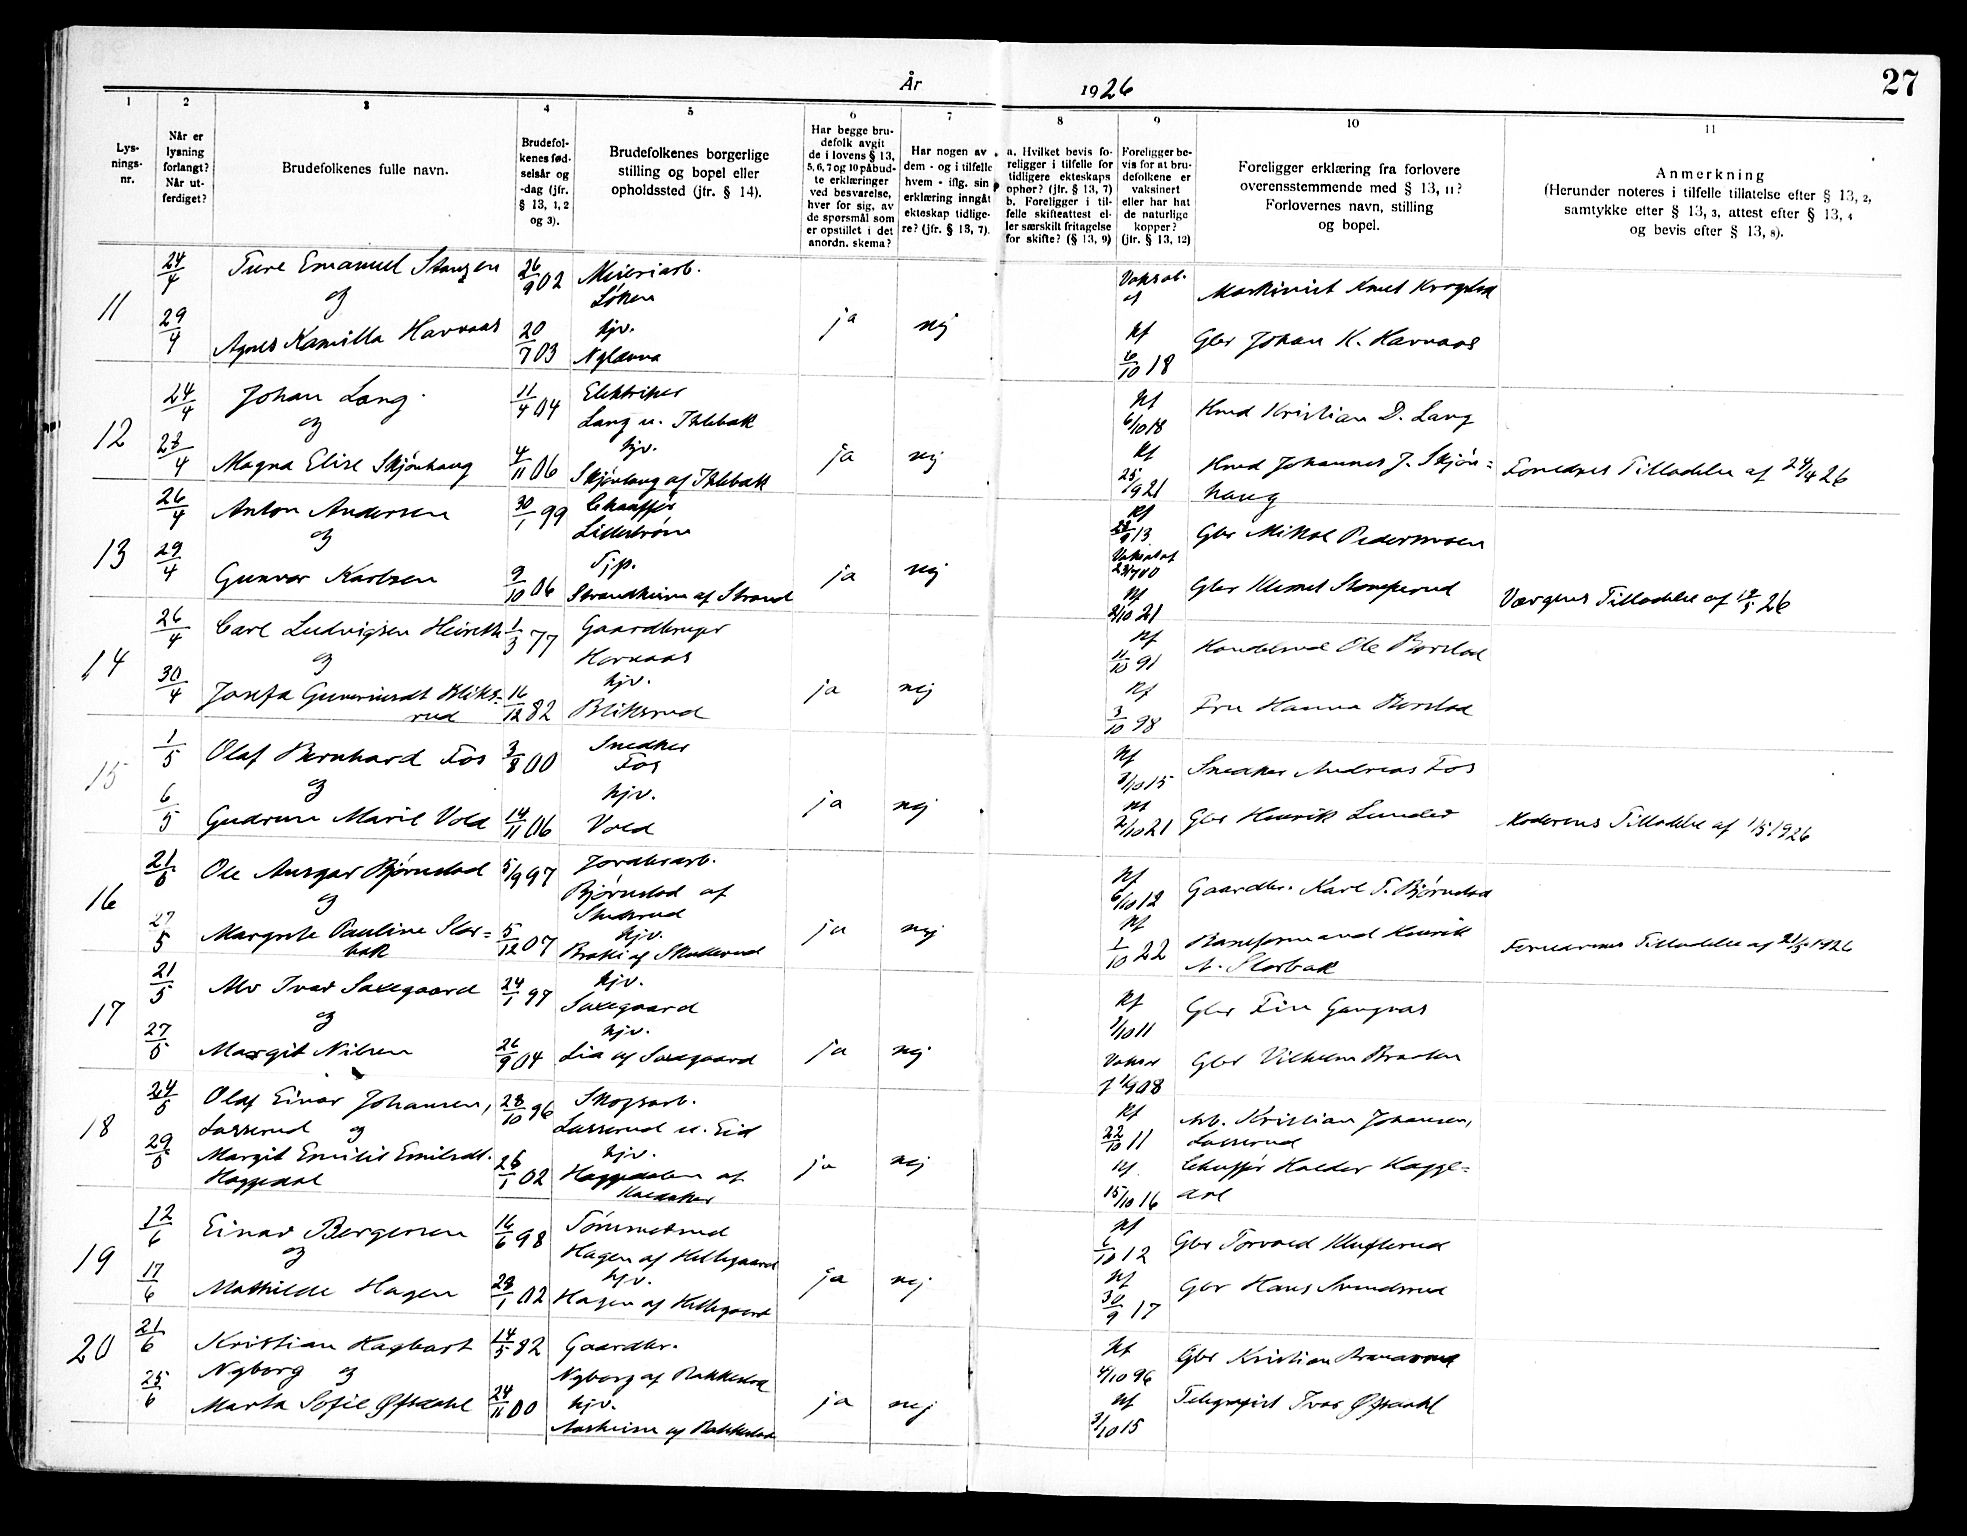 27
År 1926
1 2 3 4 5 6 7 8 9 10 11
Lys-
nings-
nr.
Når er
lysning
forlangt?
Når ut-
ferdiget?
Brudefolkenes fulle navn.
Brudefol-
kenes fød-
selsår og
-dag (jfr.
§ 13, 1, 2
og 3).
Brudefolkenes borgerlige
stilling og bopel eller
opholdssted (jfr. § 14).
Har begge bru-
defolk avgit
de i lovens § 13,
5, 6, 7 og 10 påbud-
te erklæringer
ved besvarelse,
hver for sig, av
de spørsmål som
er opstillet i det
anordn. skema?
Har nogen av
dem - og i tilfelle
hvem - iflg. sin
erklæring inngåt
ekteskap tidlige-
re? (jfr. § 13, 7).
a. Hvilket bevis fo-
religger i tilfelle for
tidligere ekteskaps
ophør? (jfr. § 13, 7)
b. Foreligger i til-
felle skifteattest el-
ler særskilt fritagelse
for skifte? (§ 13, 9)
Foreligger be-
vis for at bru-
defolkene er
vaksinert
eller har hat
de naturlige
kopper?
(jfr. § 13, 12)
Foreligger erklæring fra forlovere
overensstemmende med § 13, 11?
Forlovernes navn, stilling
og bopel.
Anmerkning
(Herunder noteres i tilfelle tillatelse efter § 13, 2,
samtykke efter § 13, 3, attest efter § 13, 4
og bevis efter § 13, 8).
11
24/4 Ture Emanuel Stangen 26/9 02 Meieriarb.
og Løken
29/4 Agnes Kamilla Havnaas 20/7 03 hjv.
ja nej
Maskinist Knut Krogstad
Kf 6/10 18 Gbr Johan K. Havnaas
12
24/4 Johan Lang 11/4 04 Elektriker
og Lang u. Ihlebæk
28/4 Magna Elise Skjønhaug 4/11 06 hjv.
Skjønhaug af Ihlebæk
ja nej
Kf 6/10 18 Kristian D. Lang
Kf 25/9 21 Johannes J. Skjøn=
haug
Tilladelse af 24/4 26
13
26/4 Anton Andersen 30/1 99 Chauffør
og Lillestrøm
29/4 Gunvor Karlsen 9/10 06 Tjp.
Strandheim af Strand
ja nej
Kf 28/9 13 Gbr Mikal Pedersmoen
Kf 2/10 21 Gbr
Værgens Tilladelse af 12/5 26
14
26/4 Carl Ludvigsen 1/3 77 Gaardbruger
og Havnaas
30/4 Josefa Guneriusdt Bliks=
rud 16/12 82 hjv.
Bliksrud
ja nej
Kf 11/10 91 Ole Borstad
Kf 3/10 98 Fru Hanna Borstad
15
1/5 Olaf Bernhard Fos 3/8 00 Snedker
og Fos
6/5 Gudrun Marie Vold 14/11 06 hjv.
Vold
ja nej
Kf 3/10 15 Snedker Andreas Fos
Kf 2/10 21 Gbr Henrik Lunder
Moderens Tilladelse af 1/5 1926
16
21/5 Ole Ansgar Bjørnstad 5/9 97 Jordbrarb.
og Bjørnstad af
27/5 Margrete Pauline Slor=
bak 5/12 07 hjv.
ja nej
Kf 6/10 12 Gaardbr. Karl T. Bjørnstad
Kf 1/10 22 Baneformand Henrik
A. Slorbak
Tilladelse af 21/5 1926
17
21/5 Alv Ivar Saxegaard 24/1 97 hjv.
og Saxegaard
27/5 Margit Nilsen 26/9 04 hjv.
Lia af Saxegaard
ja nej
Kf 1/10 11 Gbr Finn Gangnæs
Gbr Vilhelm Braaten
18
24/5 Olaf Einar Johansen, 28/10 96 Skogsarb.
Lasserud og Lasserud u. Eid
29/5 Margit Emilie Emilsdt. 26/1 02 hjv.
Haggedal Haggedalen af
ja nej
Kf 22/10 11 Arb. Kristian Johansen,
Lasserud
Kf 15/10 16 Chauffør Halder Hagge=
dal
19
12/6 Einar Bergersen 16/6 98 Tømmermand
og Hagen af Hellegaard
17/6 Mathilde Hagen 28/1 02 hjv.
Hagen af Hellegaard
ja nej
Kf 6/10 12 Gbr Torvald Klufterud
Kf 30/9 17 Gbr Hans Svendsrud
20
21/6 Kristian Hagbart 14/5 82 Gaardbr.
Nyborg og Nyborg af Rakkestad
25/6 Marta Sofie Øfsdahl 24/11 00 hjv.
Aasheim af Rakkestad
ja nej
Kf 4/10 96 Gbr Kristian
Kf 3/10 15 Telegrafist Ivar Øfsdahl